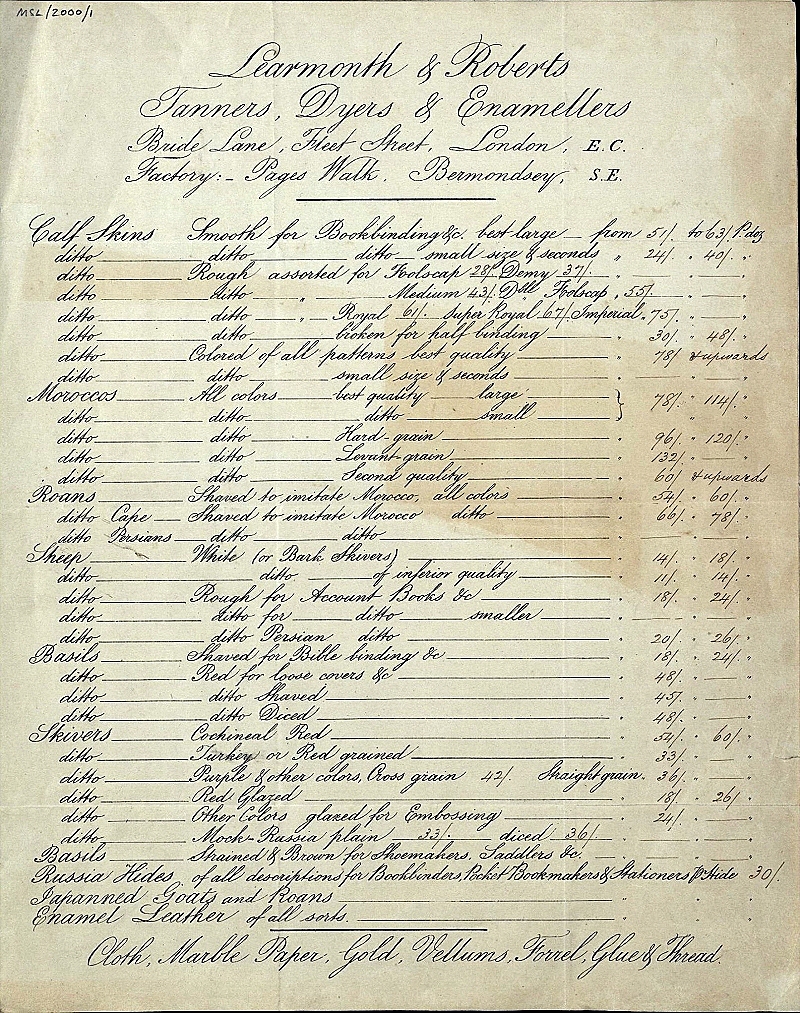 MSL/2000/1
Learmonth & Roberts
Tanners, Dyers & Enamellers
Bride Lane, Fleet Street, London, E.C.
Factory:- Pages Walk, Bermondsey, S.E.
Calf Skins Smooth for Bookbinding &c. best large from 51/. to 63/. P doz
ditto ditto ditto small size & seconds " 24/. " 40/. "
ditto Rough assorted for Foolscap 28/. Demy 37/. " "
ditto ditto " Medium 43/. Dble Foolscap, 55/. " "
ditto ditto " Royal 61/. Super Royal 67/. Imperial, 75/. " "
ditto ditto broken for half binding " 30/. " 48/. "
ditto Colored of all patterns, best quality " 78/. & upwards
ditto ditto small size & seconds " " "
Moroccos All colors best quality large } 78/. " 114/. "
ditto ditto ditto small " "
ditto ditto Hard-grain " 96/. " 120/. "
ditto ditto Levant-grain " 132/. " "
ditto ditto Second quality " 60/. & upwards
Roans Shaved to imitate Morocco, all colors " 54/. " 60/. "
ditto Cape Shaved to imitate Morocco ditto " 66/. " 78/. "
ditto Persians ditto ditto " " "
Sheep White (or Bark Skivers) " 14/. " 18/. "
ditto ditto of inferior quality " 11/. " 14/. "
ditto Rough for Account Books &c " 18/. " 24/. "
ditto ditto for ditto smaller " " "
ditto ditto Persian ditto " 20/. " 26/. "
Basils Shaved for Bible binding &c " 18/. " 24/. "
ditto Red for loose covers &c " 48/. " "
ditto ditto Shaved " 45/. " "
ditto ditto Diced " 48/. " "
Skivers Cochineal Red " 54/. " 60/. "
ditto Turkey or Red grained " 33/. " "
ditto Purple & other colors, Cross grain 42/. Straight grain. 36/. " "
ditto Red Glazed " 18/. " 26/. "
ditto Other Colors glazed for Embossing " 24/. " "
ditto Mock-Russia plain 33/. diced 36/. " "
Basils Strained & Brown for Shoemakers, Saddlers &c. " " "
Russia Hides of all descriptions for Bookbinders, Pocket Bookmakers & Stationers P Hide 30/.
Japanned Goats and Roans " " "
Enamel Leather of all sorts. " " "
Cloth, Marble Paper, Gold, Vellums, Forrel, Glue & Thread.